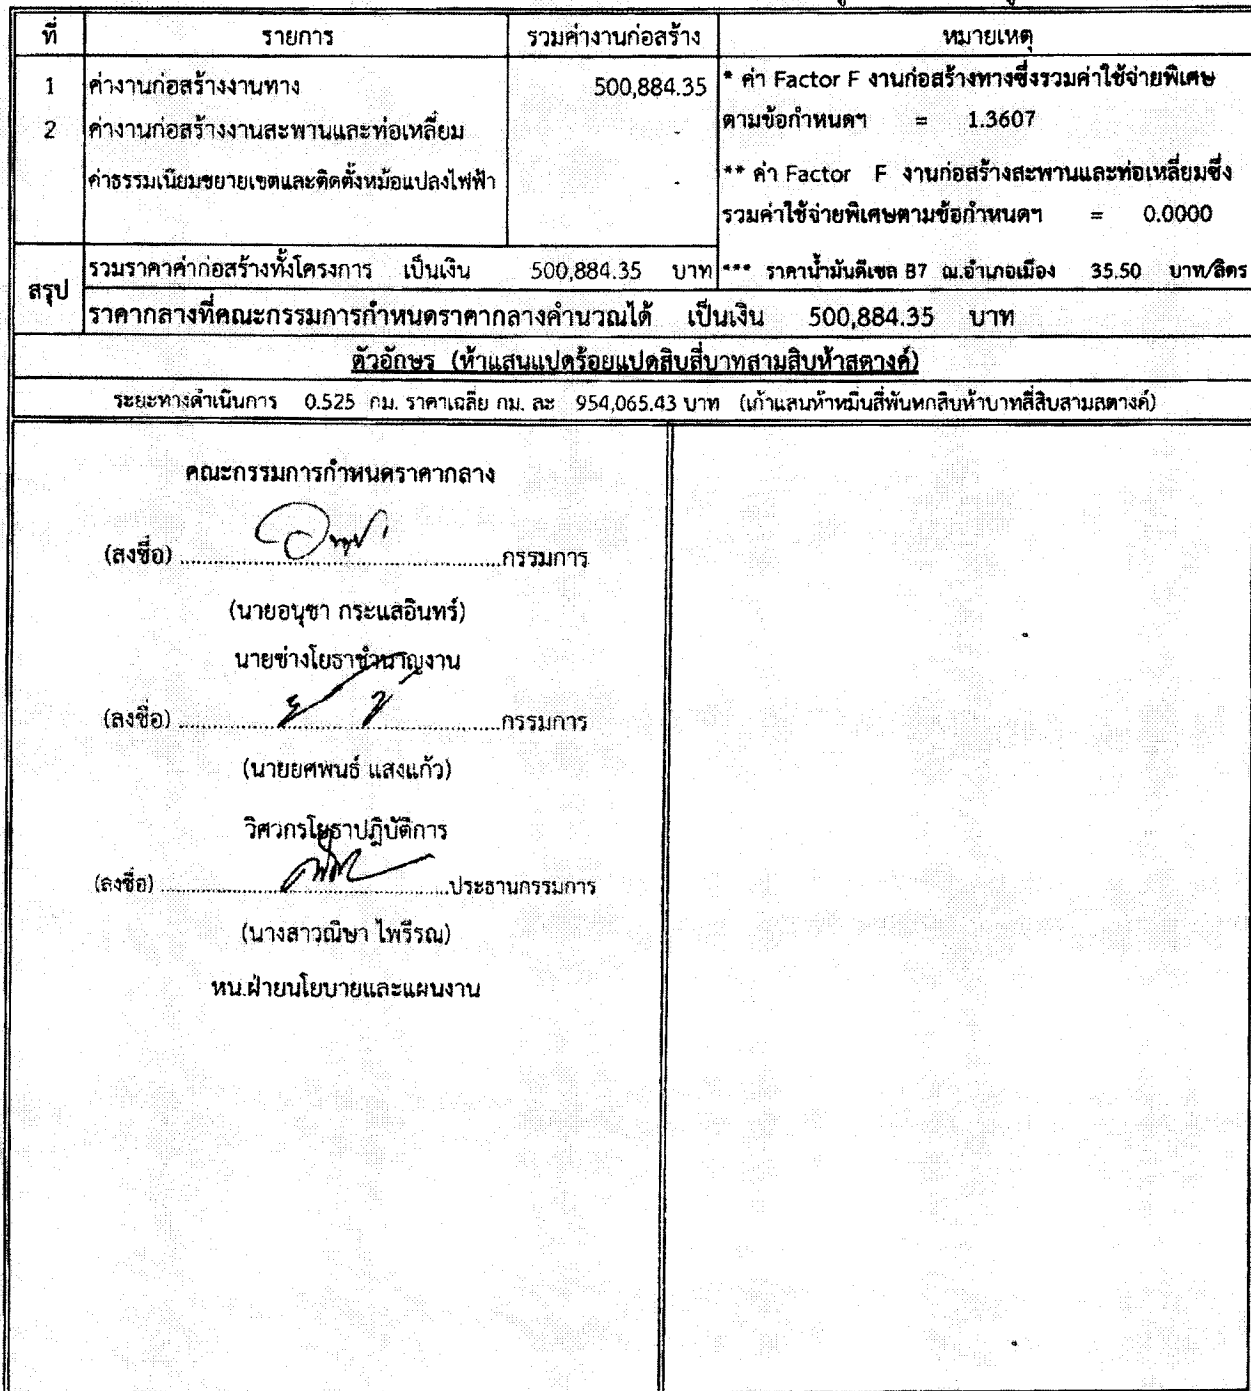 ที่ รายการ รวมค่างานก่อสร้าง หมายเหตุ
1 ค่างานก่อสร้างงานทาง 500,884.35 * ค่า Factor F งานก่อสร้างทางซึ่งรวมค่าใช้จ่ายพิเศษ
2 ค่างานก่อสร้างงานสะพานและท่อเหลี่ยม - ตามข้อกำหนดฯ = 1.3607
ค่าธรรมเนียมขยายเขตและติดตั้งหม้อแปลงไฟฟ้า - ** ค่า Factor F งานก่อสร้างสะพานและท่อเหลี่ยมซึ่ง
รวมค่าใช้จ่ายพิเศษตามข้อกำหนดฯ = 0.0000
สรุป รวมราคาค่าก่อสร้างทั้งโครงการ เป็นเงิน 500,884.35 บาท *** ราคาน้ำมันดีเซล B7 ณ.อำเภอเมือง 35.50 บาท/ลิตร
ราคากลางที่คณะกรรมการกำหนดราคากลางคำนวณได้ เป็นเงิน 500,884.35 บาท
ตัวอักษร (ห้าแสนแปดร้อยแปดสิบสี่บาทสามสิบห้าสตางค์)
ระยะทางดำเนินการ 0.525 กม. ราคาเฉลี่ย กม. ละ 954,065.43 บาท (เก้าแสนห้าหมื่นสี่พันหกสิบห้าบาทสี่สิบสามสตางค์)
คณะกรรมการกำหนดราคากลาง
(ลงชื่อ) ..................................................กรรมการ
(นายอนุชา กระแสอินทร์)
นายช่างโยธาชำนาญงาน
(ลงชื่อ) ..................................................กรรมการ
(นายยศพนธ์ แสงแก้ว)
วิศวกรโยธาปฏิบัติการ
(ลงชื่อ) .............................................ประธานกรรมการ
(นางสาวณิษา ไพรีรณ)
หน.ฝ่ายนโยบายและแผนงาน